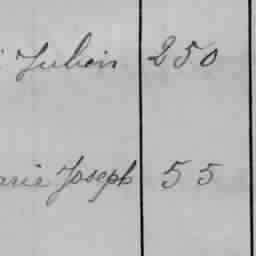 Julien 250
arie Joseph 55